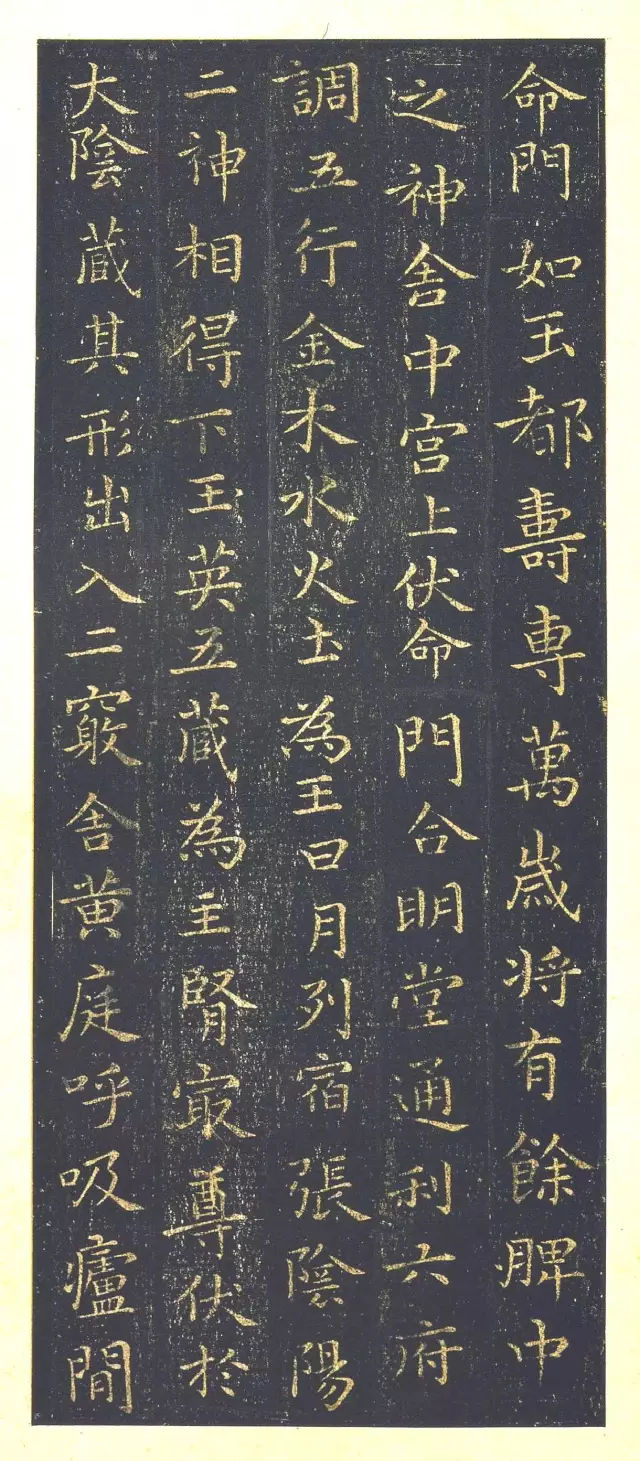 命門如王都壽専萬歲将有餘脾中
之神舎中宫上伏命門合明堂通利六府
調五行金木水火土為王日月列宿張陰陽
二神相得下玉英五藏為主腎㝡尊伏於
大陰藏其形出入二竅舎黄庭呼吸廬間